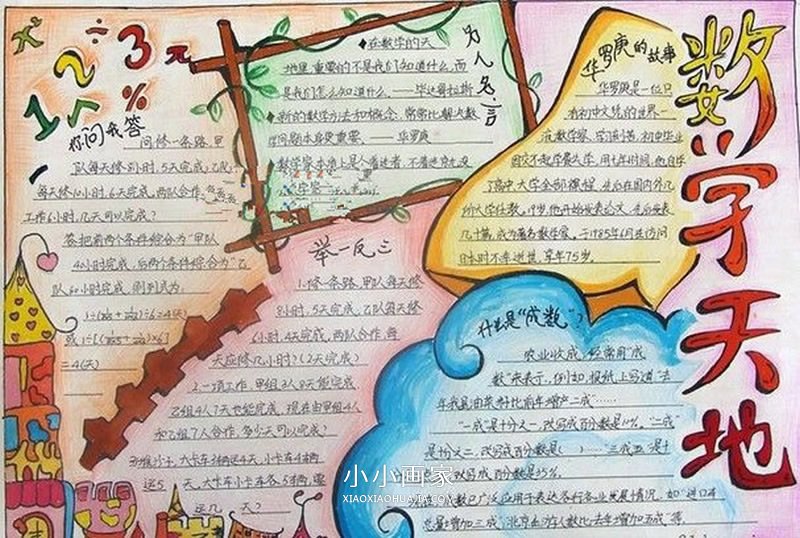 数学天地
x²
÷
1 2 3
%
你问我答
问修一条路,甲
队每天修8小时,5天完成;乙队
每天修10小时,6天完成,两队合作,
工作6小时,几天可以完成?
答把前两个条件综合为"甲队
40小时完成,后两个条件综合为"乙
队60小时完成,则列式为:
=4(天)
名人名言
在数学的天
地里,重要的不是我们知道什么,而
是我们怎么知道什么.——毕达哥拉斯
新的数学方法和概念,常常比解决数
学问题本身更重要.——华罗庚
华罗庚的故事
华罗庚是一位只
有初中文凭的世界一
流数学家
因交不起学费失学,用七年时间,他自学
了高中、大学全部课程,先后在国内外几
所大学任教,19岁,他开始发表论文,先后发表
几十篇,成为著名数学家,于1985年6月在访问
日本时不幸逝世,享年75岁.
举一反三
1.修一条路,甲队每天修
8小时,5天完成,乙队每天修
6小时,4天完成,两队合作,每
天应修几小时?(2天完成)
2.一项工作,甲组3人8天能完成
乙组4人7天也能完成,现在由甲组4人
和乙组7人合作,多少天可以完成?
大卡车3辆运4天,小卡车4辆
运5天,大卡车小卡车各
运几天?
什么是"成数"?
农业收成,经常用"成
数"来表示,例如,报纸上写道"去
年我县油菜籽比前年增产二成"……
"一成"是十分之一,改写成百分数是10%."二成"
是十分之二,改写成百分数是( )……三成五"是十
改写成百分数是35%.
成数已广泛应用于表达各行各业发展情况,如"进口车
总量增加三成""北京出游人数比去年增加五成"等.
小小画家
XIAOXIAOHUAJIA.COM